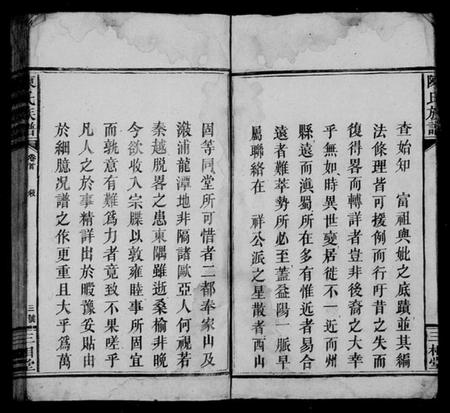 陳氏族譜
查始知 富祖與妣之底蹟並其編
法條理皆可援例而行吁昔之失而
復得畧而轉詳者豈非後裔之大幸
乎無如時異世變居徙不一近而州
縣遠而滇蜀所在多有惟近者易合
遠者難萃勢所必至蓋益陽一脈早
屬聯絡在 祥公派之星散者西山
三相堂
固等同堂所可惜者二都奉家山及
漵浦龍潭地非隔諸歐亞人何視若
秦越脫畧之患東隅雖逝桑榆非晚
今欲收入宗牒以敦雍睦事所固宜
而孰意有難為力者竟致不果嗟乎
凡人之於事精詳出於暇豫妥貼由
於細臆况譜之作更重且大乎為萬
陳氏族譜
卷首
三號
三相堂